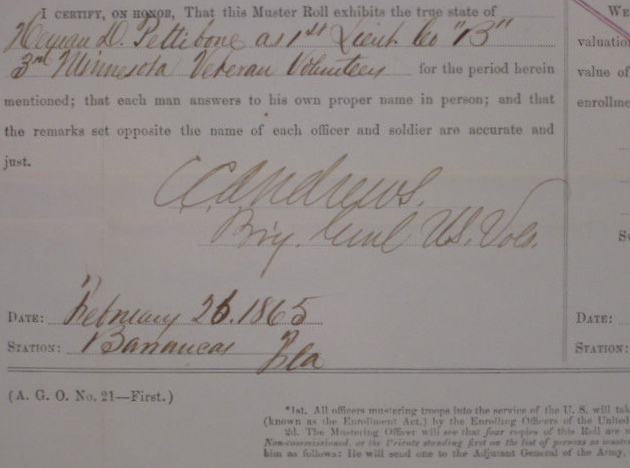 I CERTIFY, ON HONOR, That this Muster Roll exhibits the true state of
Heman D. Pettibone as 1st Lieut. Co "B"
3rd Minnesota Veteran Volunteers for the period herein
mentioned; that each man answers to his own proper name in person; and that
the remarks set opposite the name of each officer and soldier are accurate and
just.
C.C. Andrews.
Brig. Genl U.S. Vols.
DATE: February 26. 1865
STATION: Barrancas Fla
(A. G. O. No. 21—First.)
*1st. All officers mustering troops into the service of the U. S. will
(known as the Enrollment Act,) by the Enrolling Officers of the United
2d. The Mustering Officer will see that four copies of this Roll are
Non-commissioned, or the Private standing first on the list of persons
him as follows: He will send one to the Adjutant General of the Army.
WE
valuation
value of
enrollme
DATE:
STATION: